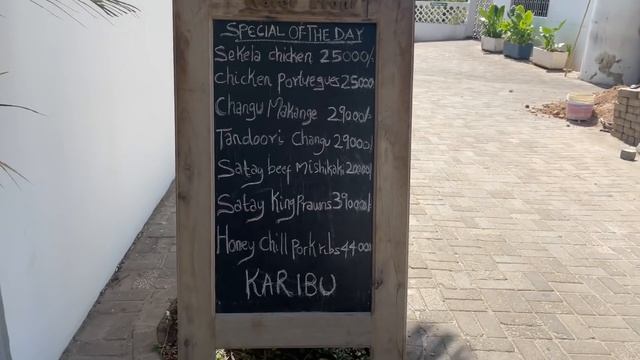 SPECIAL OF THE DAY
Sekela chicken 25000/-
Chicken Portuegues 25000
Changu Makange 29000/-
Tandoori Changu 29000/-
Satay beef Mishikaki 20000/-
Satay King Prawns 39000/-
Honey Chill Pork ribs 44000
KARIBU